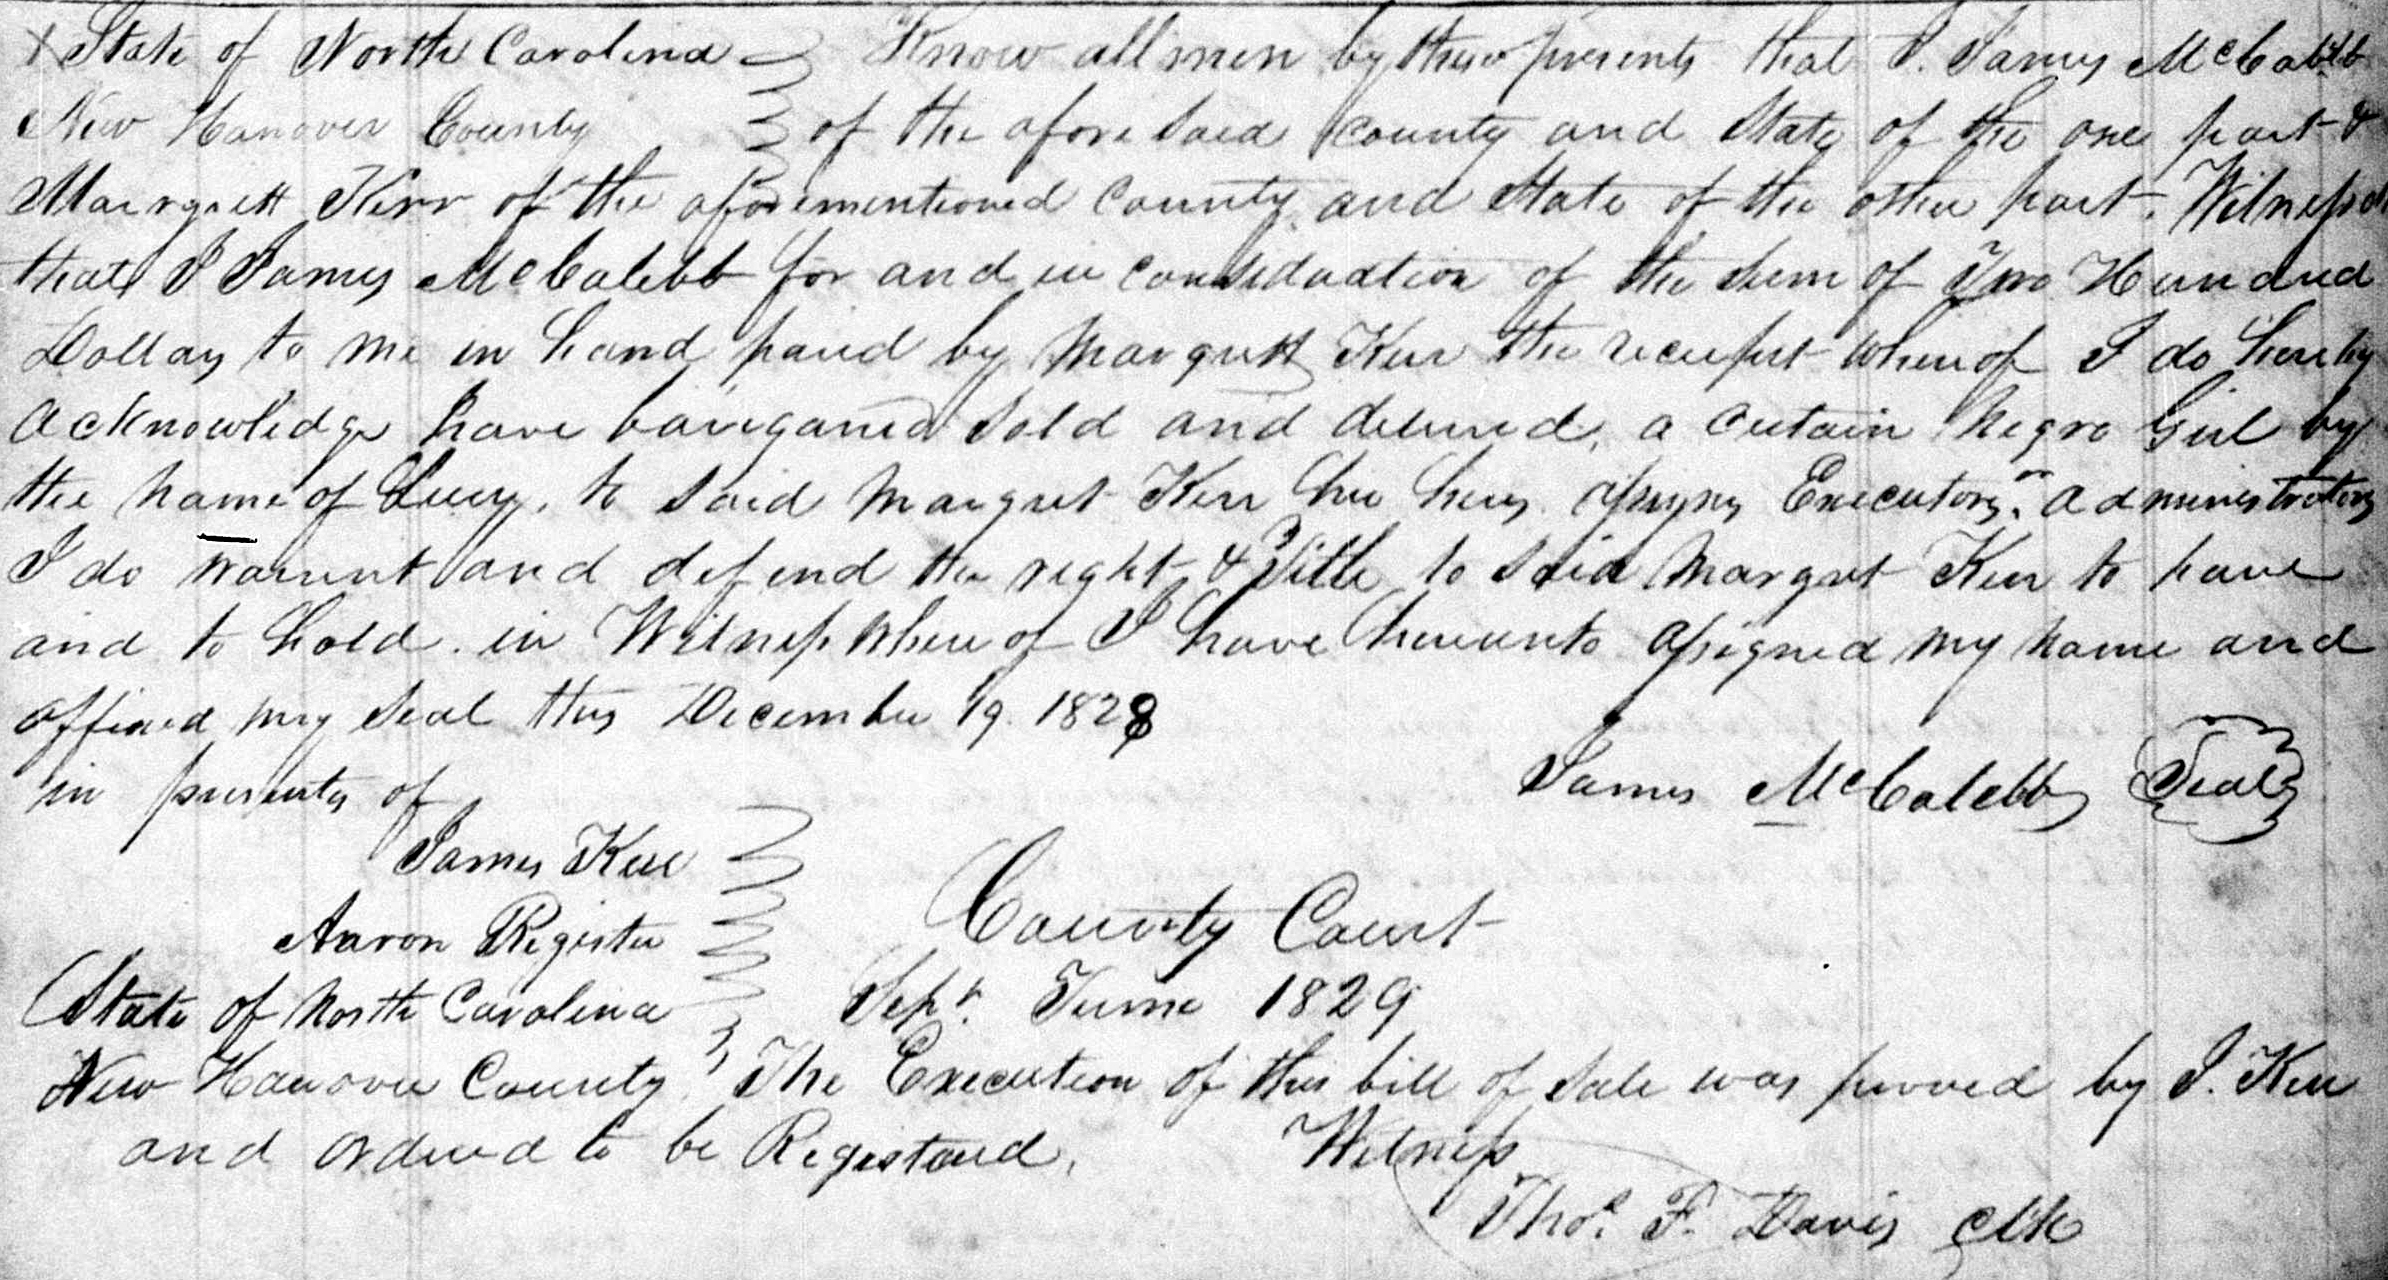 State of North Carolina Know all men by these presents that I. James McCalebb
New Hanover County of the afore said county and State of the one part &
Margrett Kerr of the aforementioned County and State of the other part. Witnesseth
that I James McCalebb for and in consideration of the sum of Two Hundred
Dollars to me in hand paid by Margrett Kerr the receipt whereof I do hereby
acknowledge have bargained sold and delivered, a certain Negro Girl by
the name of Lucy, to said Margret Kerr her heirs assigns Executors or administrators
I do warrent and defend the right & Title to said Margret Kerr to have
and to hold. in Witness where of I have hereunto assigned my name and
affixed my seal this December 19. 1828
in presents of
James McCalebb Seal
James Kerr
Aaron Register
County Court
State of North Carolina Sept. Turme 1829
New Hanover County The Execution of this bill of sale was proved by J. Kerr
and ordered to be Registered.
Witness
Thos. F. Davis Clk